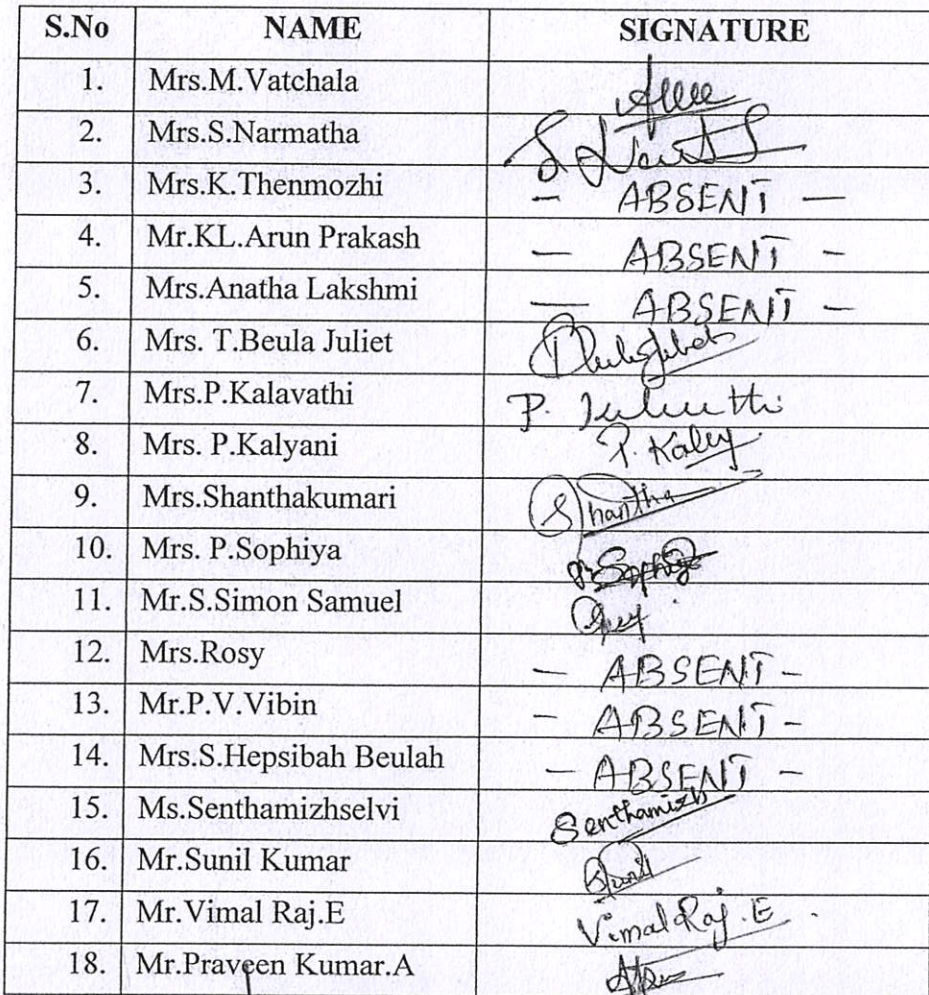 S.No NAME SIGNATURE
1. Mrs.M.Vatchala
2. Mrs.S.Narmatha
3. Mrs.K.Thenmozhi - ABSENT -
4. Mr.KL.Arun Prakash - ABSENT -
5. Mrs.Anatha Lakshmi - ABSENT -
6. Mrs. T.Beula Juliet
7. Mrs.P.Kalavathi P.
8. Mrs. P.Kalyani P. Kaley
9. Mrs.Shanthakumari Shantha
10. Mrs. P.Sophiya P. Sophiya
11. Mr.S.Simon Samuel
12. Mrs.Rosy - ABSENT -
13. Mr.P.V.Vibin - ABSENT -
14. Mrs.S.Hepsibah Beulah - ABSENT -
15. Ms.Senthamizhselvi Senthamizh
16. Mr.Sunil Kumar Sunil
17. Mr.Vimal Raj.E Vimal Raj. E
18. Mr.Praveen Kumar.A